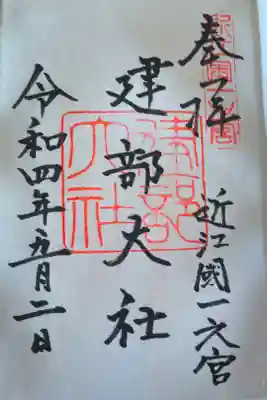 奉拝
近江國一之宮
建部大社
建部
大社
令和四年五月二日